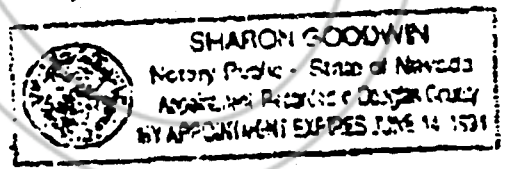 SHARON GOODWIN
Notary Public - State of Nevada
Appointment Recorded in Douglas County
MY APPOINTMENT EXPIRES JUNE 14